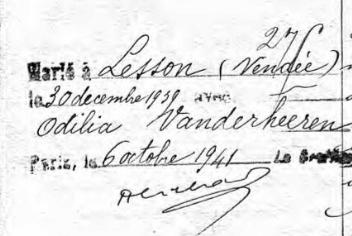 27
Marié à Lesson (Vendée)
le 30 decembre 1939 avec
Odilia Vanderheeren
Paris, le 6 octobre 1941 Le Greffier